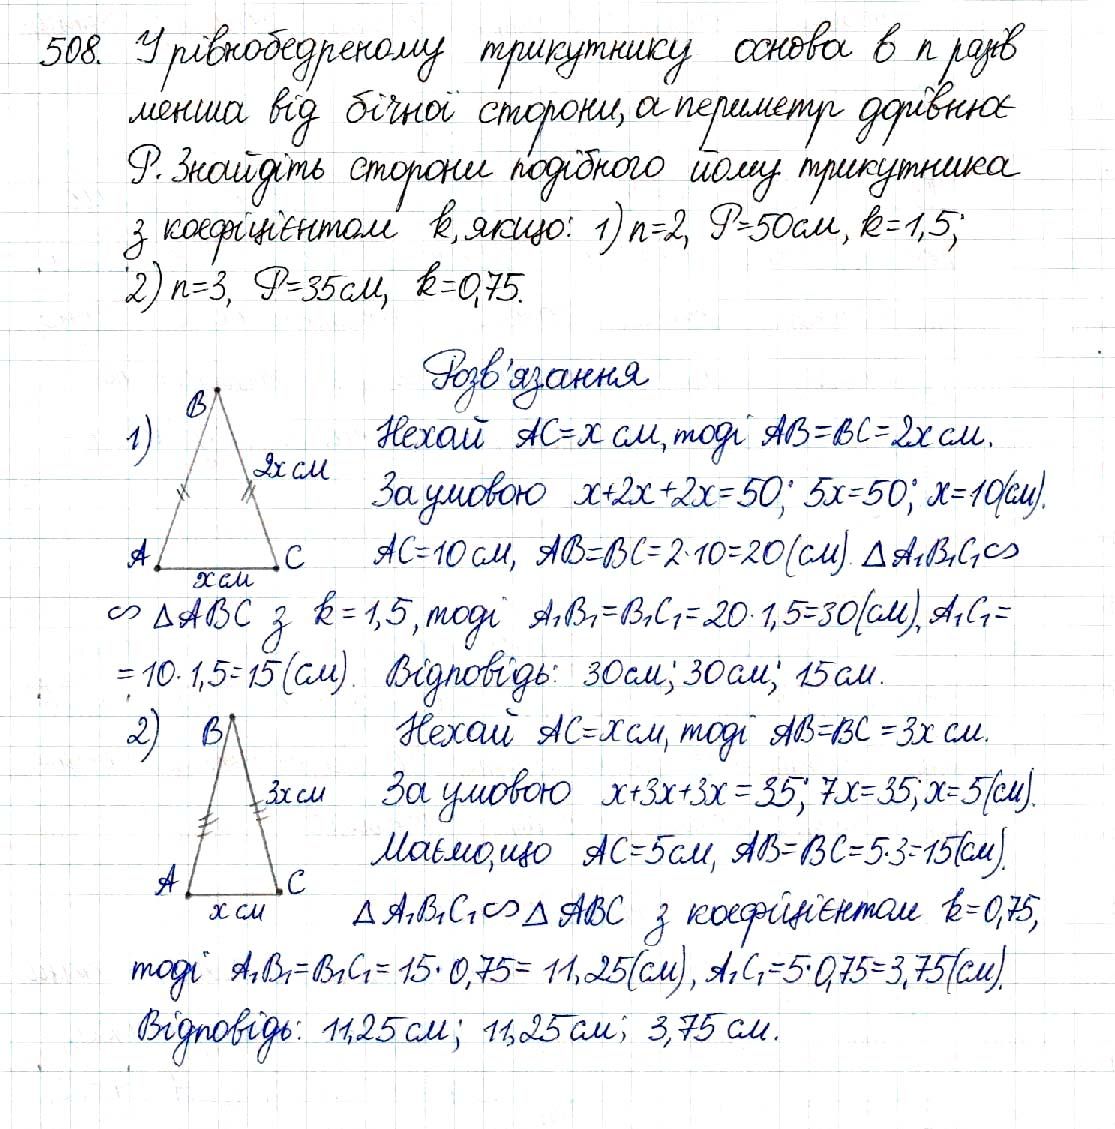 508. У рівнобедреному трикутнику основа в n разів
менша від бічної сторони, а периметр дорівнює
P. Знайдіть сторони подібного йому трикутника
з коефіцієнтом k, якщо: 1) n=2, P=50см, k=1,5;
2) n=3, P=35см, k=0,75.
Розв'язання
1)
B
2x см
A
C
x см
Нехай AC=x см, тоді AB=BC=2x см.
За умовою x+2x+2x=50; 5x=50; x=10(см).
AC=10 см, AB=BC=2·10=20(см). Δ A₁B₁C₁∽
∽ ΔABC з k=1,5, тоді A₁B₁=B₁C₁=20·1,5=30(см), A₁C₁=
=10·1,5=15(см). Відповідь: 30см; 30см; 15см.
2)
B
3x см
A
C
x см
Нехай AC=x см, тоді AB=BC=3x см.
За умовою x+3x+3x=35; 7x=35; x=5(см).
Маємо, що AC=5см, AB=BC=5·3=15(см).
Δ A₁B₁C₁∽Δ ABC з коефіцієнтом k=0,75,
тоді A₁B₁=B₁C₁=15·0,75=11,25(см), A₁C₁=5·0,75=3,75(см).
Відповідь: 11,25 см; 11,25 см; 3,75 см.